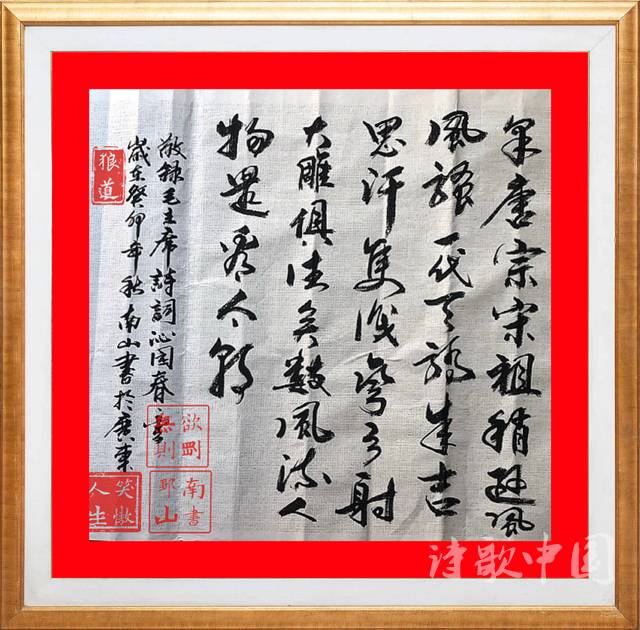 采唐宗宋祖稍逊風
風騷一代天驕成吉
思汗隻識彎弓射
大雕俱往矣數風流人
物還看今朝
敬録毛主席詩詞沁园春雪
歲在癸卯年秋南山書於廣東
狼道
無欲則剛
邓南山書
笑傲人生
诗歌中国